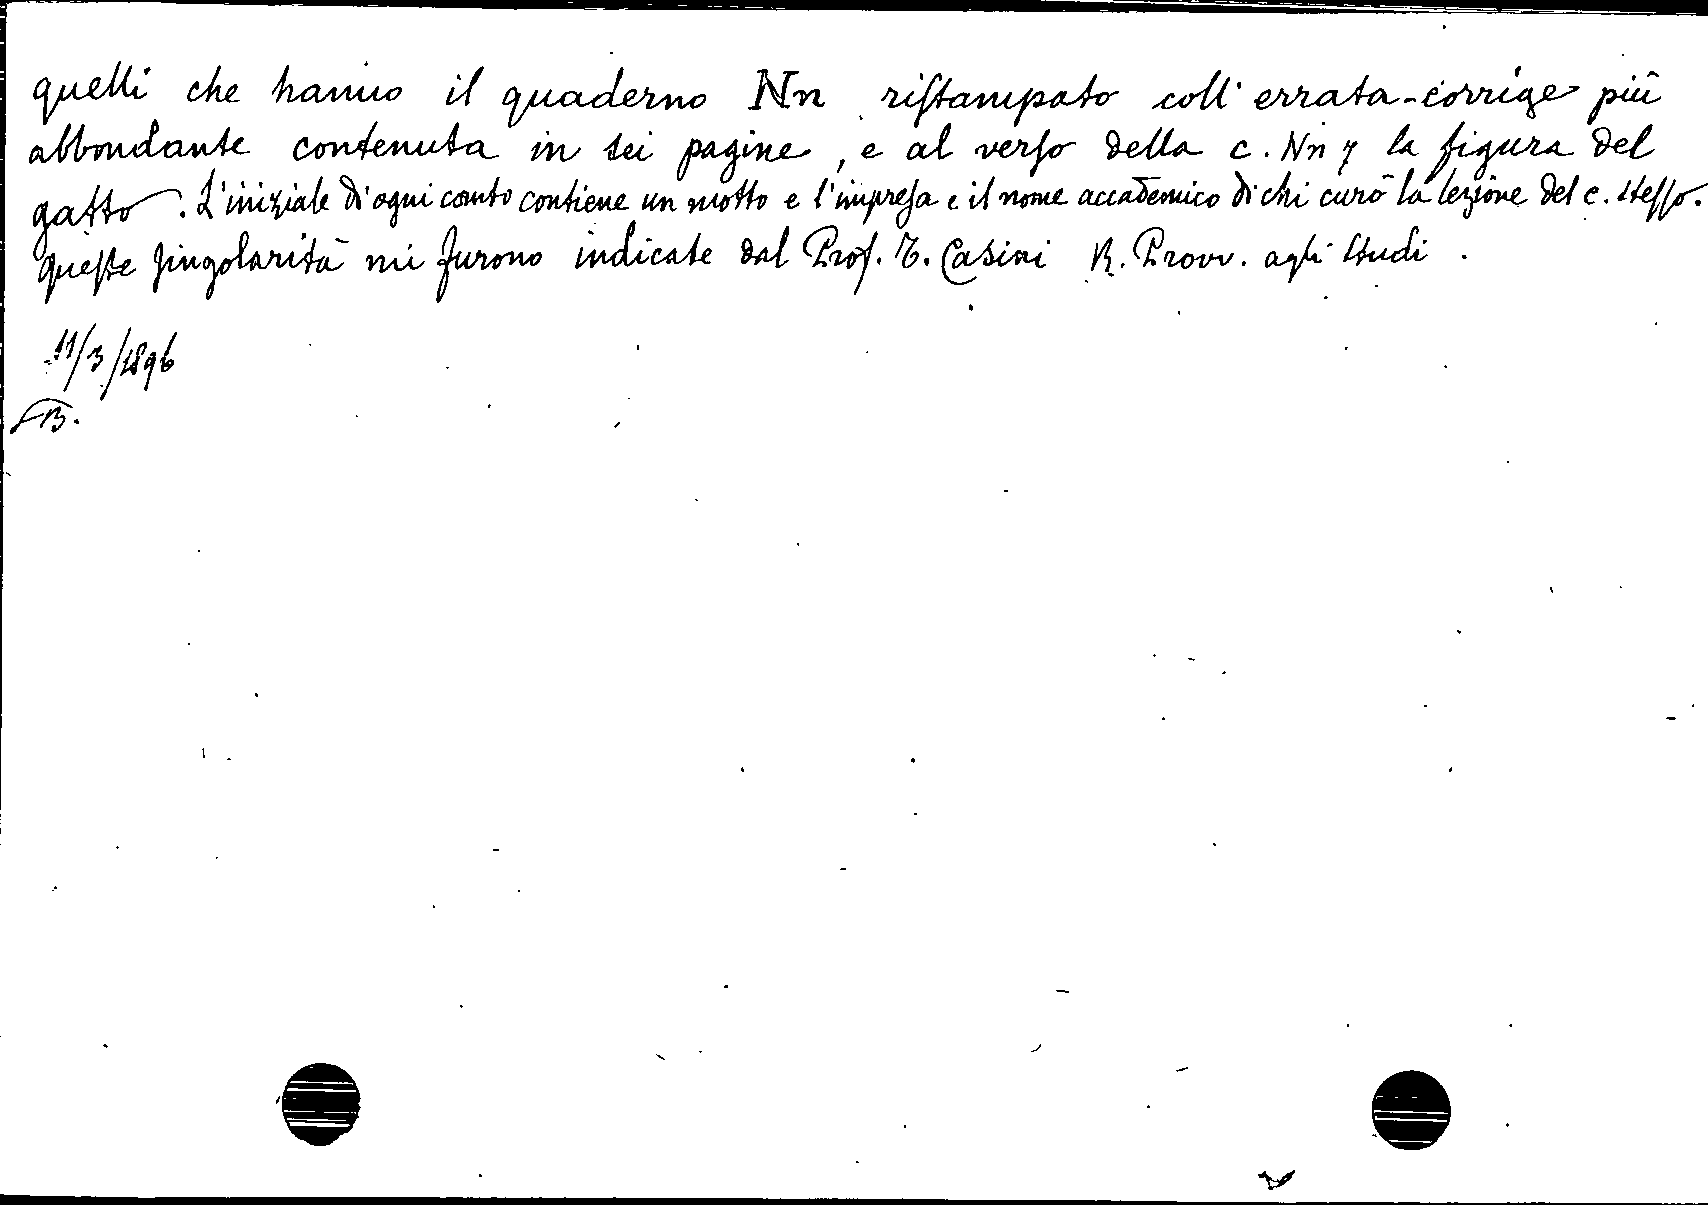 quelli che hanno il quaderno Nn ristampato coll'errata-corrige più
abbondante contenuta in sei pagine, e al verso della c. Nn 7 la figura del
gatto. L'iniziale di ogni canto contiene un motto e l'impresa e il nome accademico di chi curò la lezione del c. stesso.
queste singolarità mi furono indicate dal Prof. T. Casini R. Provv. agli Studi.
11/3/1896